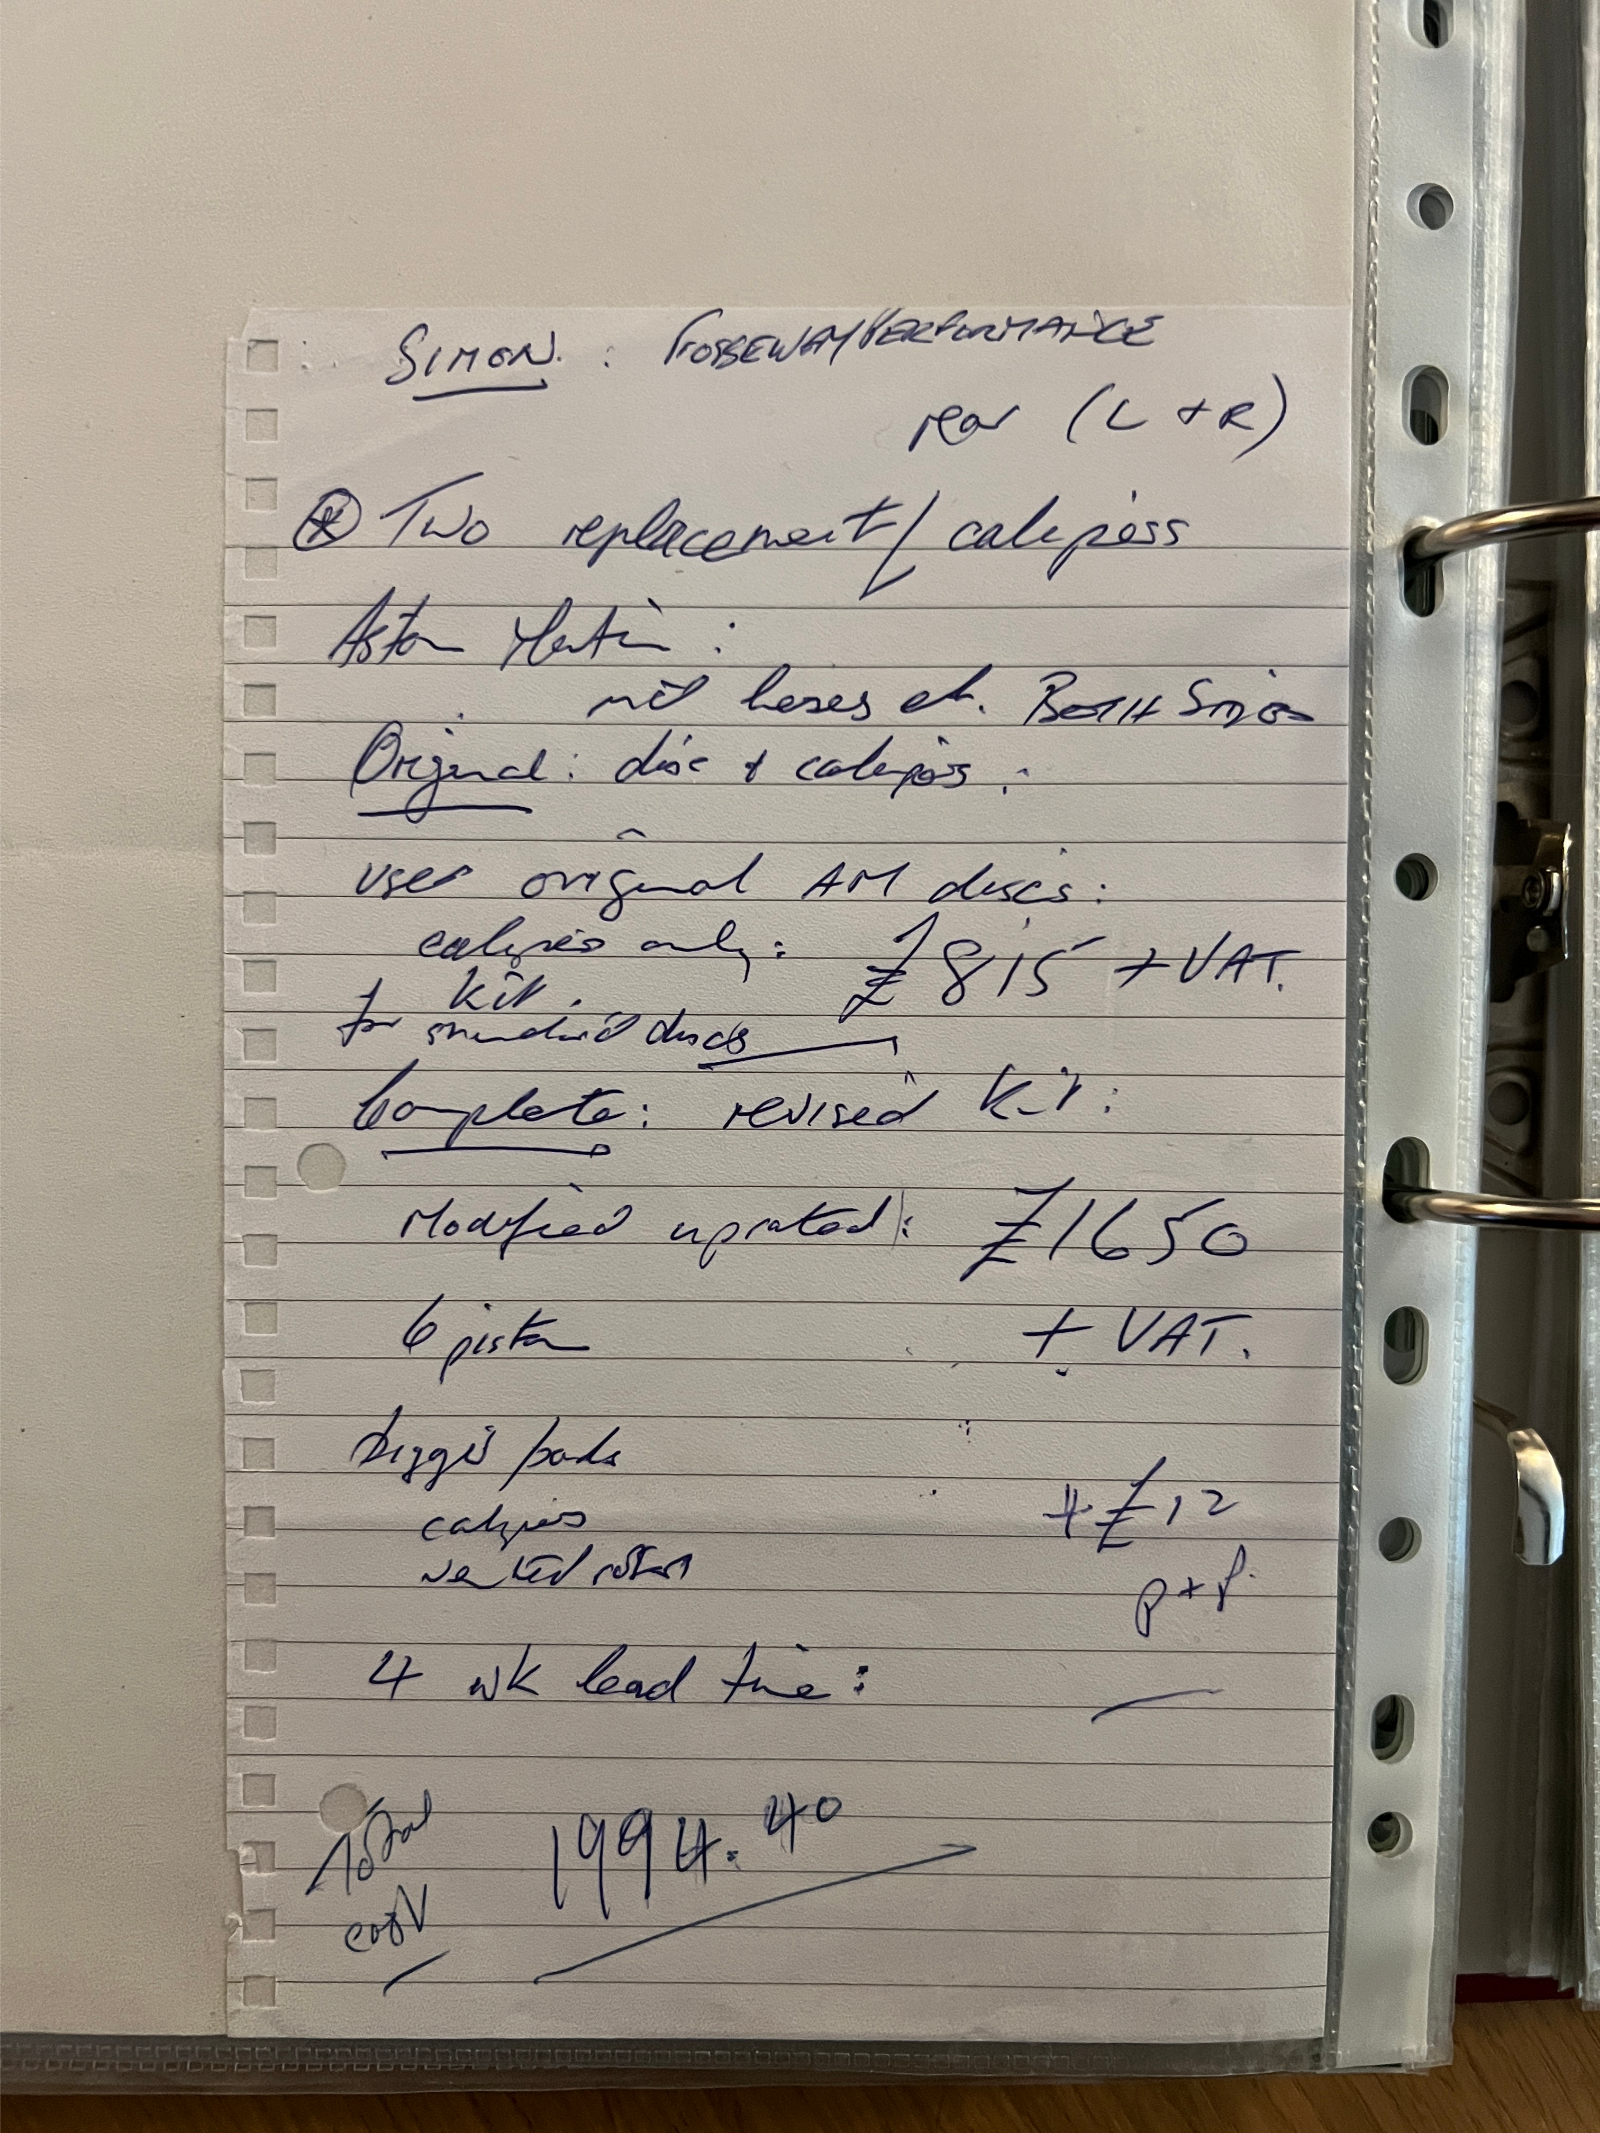 SIMON. : FOSSEWAY PERFORMANCE
rear (L + R)
* Two replacement calipers
Aston Martin :
hoses etc. BOTH SIDES
Original : disc + calipers :
uses original AM discs :
calipers only : £815 + VAT.
kit.
for standard discs
Complete : revised kit :
Modified uprated : £1650
6 piston + VAT.
bigger pads
calipers + £12
vented rotors
p + p.
4 wk lead time :
Total
cost 1994.40